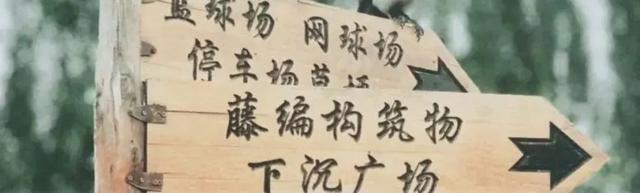 篮球场 网球场
停车场草场
藤编构筑物
下沉广场